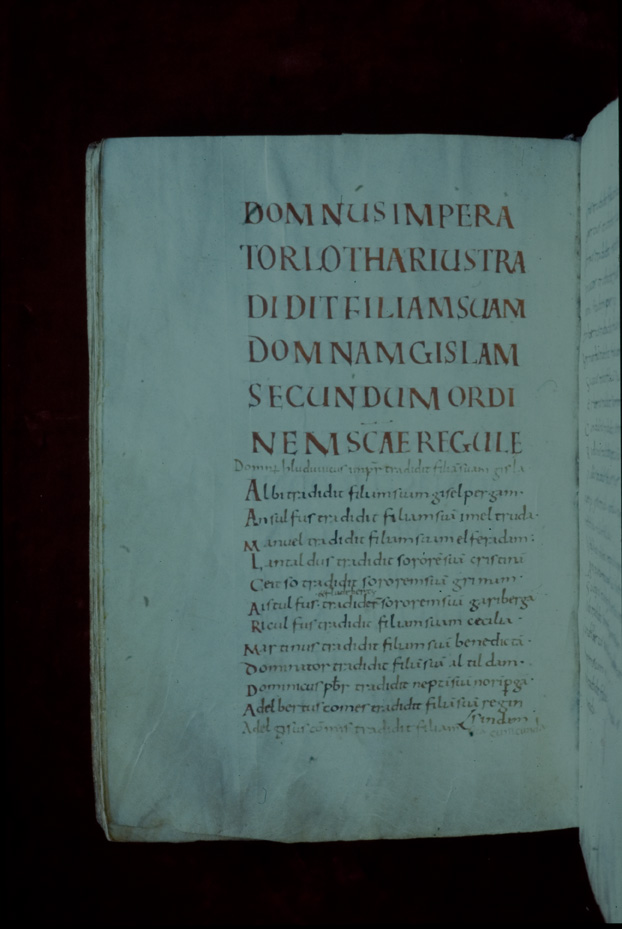 DOMNUSIMPERA
TORLOTHARIUSTRA
DIDITFILIAMSUAM
DOMNAMGISLAM
SECUNDUMORDI
NEMSCAEREGULE
tradidit filiā suam gisla
Albi tradidit filiam suam giselpergam
Ansulfus tradidit filiam suā imeltruda
Manuel tradidit filiam suam elferadam
Lantaldus tradidit sororē suā cristina
tradidit sororem suā
Aistulfus tradidit sororem suā gariberga
Riculfus tradidit filiam suam cecilia
Martinus tradidit filiam suā benedicta
Dominator tradidit filiā suā altildam
Dominicus pbr tradidit neptē suā noripga
Adelbertus comes tradidit filiā suā regin
lindam
Adelgisus comis tradidit filiam